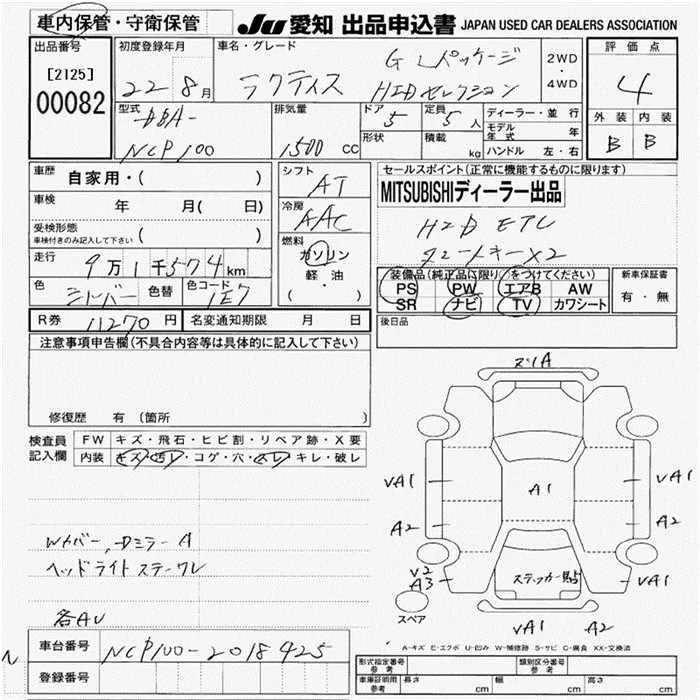 車内保管・守衛保管
JU 愛知 出品申込書 JAPAN USED CAR DEALERS ASSOCIATION
出品番号
[2125]
00082
初度登録年月
22年 8月
車名・グレード
ラクティス
G Lパッケージ
HIDセレクション
2WD
・
4WD
評価点
4
外装 内装
B B
型式
DBA-
NCP100
排気量
1500 cc
ドア 5
形状
定員 5人
積載 kg
ディーラー・並行
モデル年式 年
ハンドル 左・右
車歴 自家用・( )
車検 年 月( 日)
受検形態
車検付きのみ記入して下さい ( )
走行 9万1千574km
色 シルバー 色替 色コード 1E7
シフト
AT
冷房
AAC
燃料
ガソリン
軽油
( ・ )
R券 11270円 名変通知期限 月 日
セールスポイント(正常に機能するものに限ります)
MITSUBISHIディーラー出品
HID ETC
スマートキー×2
装備品(純正品に限り○をつけてください)
PS PW エアB AW
SR ナビ TV カワシート
新車保証書
有・無
後日品
注意事項申告欄(不具合内容等は具体的に記入して下さい)
修復歴 有(箇所 )
検査員記入欄
FW キズ・飛石・ヒビ割・リペア跡・X要
内装 キズ・汚レ・コゲ・穴・スレ・キレ・破レ
Wカバー, Dミラー A
ヘッドライト ステークレ
各AU
車台番号 NCP100-2018425
登録番号
A1
UA1 UA1
A2 A2
U2
A3
UA1
ステッカー貼
UA1 A2
スペア
A-キズ E-エクボ U-凹み W-補修跡 S-サビ C-腐食 XX-交換済
形式指定番号 参考
類別区分番号 参考
車庫証明用 参考 長さ cm 幅 cm 高さ cm